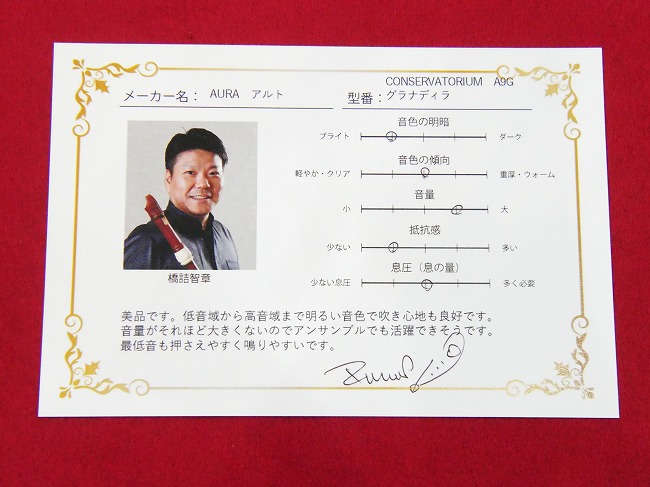 CONSERVATORIUM A9G
メーカー名: AURA アルト 型番: グラナディラ
音色の明暗
ブライト ダーク
音色の傾向
軽やか・クリア 重厚・ウォーム
音量
小 大
抵抗感
少ない 多い
息圧(息の量)
少ない息圧 多く必要
橋詰智章
美品です。低音域から高音域まで明るい音色で吹き心地も良好です。
音量がそれほど大きくないのでアンサンブルでも活躍できそうです。
最低音も押さえやすく鳴りやすいです。